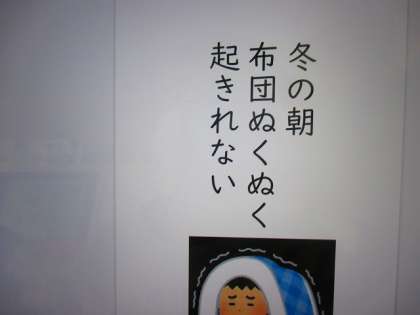 冬の朝
布団ぬくぬく
起きれない